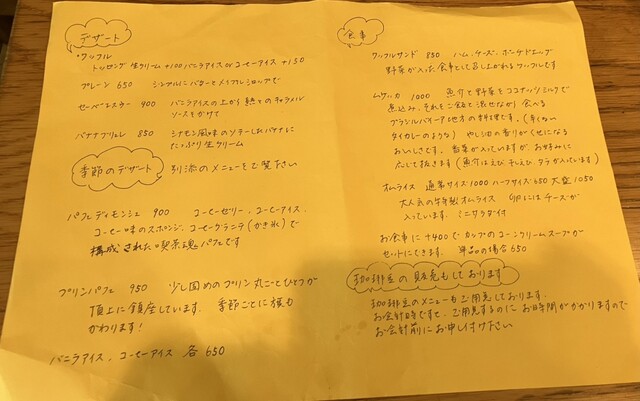 デザート
・ワッフル
トッピング 生クリーム +100 バニラアイス or コーヒーアイス +150
プレーン 650 シンプルにバターとメイプルシロップで
900 バニラアイスの上から熱々のキャラメル
ソースをかけて
850 シナモン風味のソテーしたバナナに
たっぷり生クリーム
季節のデザート 別添のメニューをご覧下さい
パフェ ディモンシュ 900 コーヒーゼリー、コーヒーアイス、
コーヒー味のスポンジ、コーヒーグラニテ(かき氷)で
構成された喫茶魂パフェです
プリンパフェ 950 少し固めのプリン丸ごとひとつが
頂上に鎮座しています。季節ごとに旗も
かわります!
バニラアイス、コーヒーアイス 各650
食事
ワッフルサンド 850 ハム、チーズ、ポーチドエッグ
野菜が入った食事として召し上がれるワッフルです
ムケッカ 1000 魚介と野菜をココナッツミルクで
煮込み、それをご飯と混ぜながら食べる
ブラジルバイーア地方の料理です。(辛くない
タイカレーのような) やしの油の香りがくせになる
おいしさです。香菜が入っていますが、お好みに
応じて抜きます(魚介はえび そえび、タラが入っています)
オムライス 通常サイズ1000 ハーフサイズ650 大盛1050
大人気の オムライス 卵にはチーズが
入っています。ミニサラダ付
お食事に+400で カップのコーンクリームスープが
セットにできます。単品の場合650
珈琲豆の販売もしております
珈琲豆のメニューもご用意しております。
お会計時ですと、ご用意するのにお時間がかかりますので
お会計前にお申し付け下さい